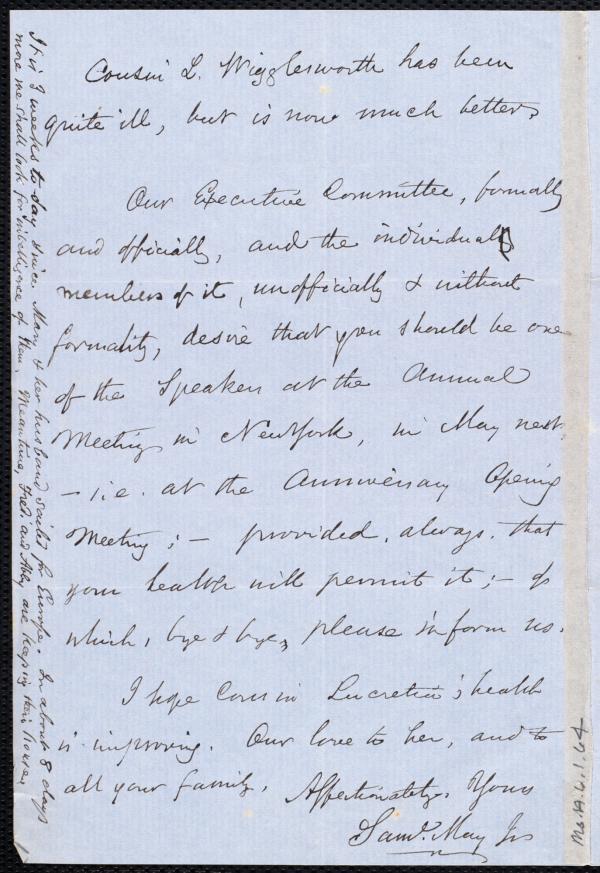 Cousin L. Wigglesworth has been
quite ill, but is now much better.
Our Executive Committee, formally
and officially, and the individual
members of it, unofficially & without
formality, desire that you should be one
of the Speakers at the Annual
Meeting in New York, in May next,
– i.e. at the Anniversary Opening
Meeting; – provided, always, that
your health will permit it; – of
which, bye & bye, please inform us.
I hope Cousin Lucretia's health
is improving. Our love to her, and to
all your family. Affectionately Yours
Saml. May Jr
It is 3 weeks to day since Mary & her husband sailed for Europe. In about 8 days
more we shall look for intelligence of them. Meantime, Fred. and Abby are keeping their House.
Ms.A.6.1.64